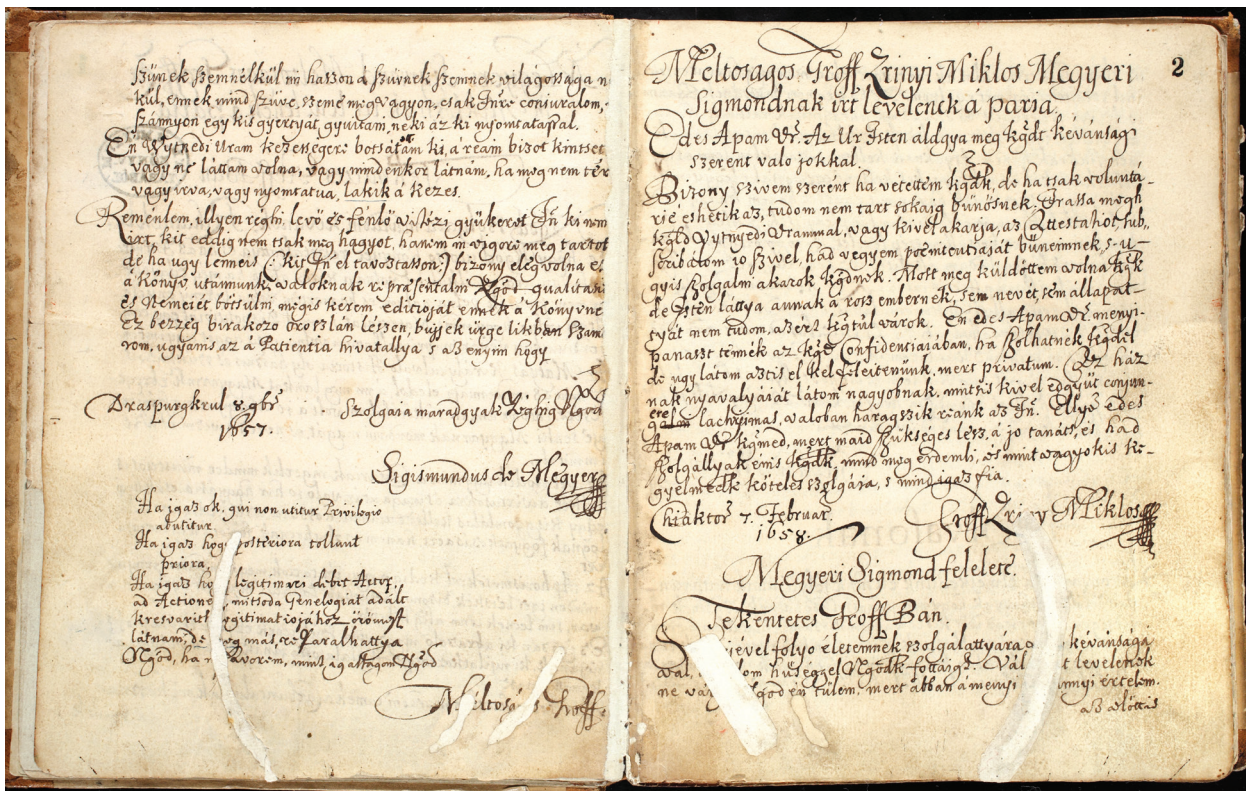 szünek szemnélkül mi haszon á szüvnek szemnek világossága n
kül, ennek mind szüve, szeme megvagyon, csak
szánnyon egy kis gyertyát gyuitani, neki áz ki nyomtatassal.
En Wytnedi Uram kezessegere botsátám ki, a reám bizot kintset
vagy ne láttam volna, vagy mindenkor látnám, ha meg nem tér
vagy irva, vagy nyomtatua, lakik á kezes.
Remenlem, illyen reghi, levö és fénlö vitézi gyükeret ki nem
irt, kit eddig nem tsak meg hagyot, hanem in vigore meg tartot
de ha ugy lenneis (: kit el tavoztasson :) bizony eleg volna e
á Könyv utánnunk valoknak repraesentalni Ngod qualitasi
és Nemeiét bötsülni, mégis kérem editioját ennek á Könyvne
Ez bezzeg birakozo oroszlán lészen, bujjek ürge likban szam
rom, ugyanis az á Patientia hivatallya s az enyim hogy
Draspurgkrul 8. 9bris szolgaia maradgyak Ngod
1657.
Sigismundus de Megyer
Ha igaz ok, qui non utitur Privilegio
abutitur
Ha igaz hogy posteriora tollunt
priora,
Ha igaz ho legitimari debet Actor,
ad Actione mitsoda Genelogiát adált
kresvarith egitimatiojához örömest
látnám, de meg más, re Paralhattya
Ngod, ha favorem, mint, igasságom Ngod
Méltoságos Groff
2
Meltosagos Groff Zrinyi Miklos Megyeri
Sigmondnak irt levelenek á paria
Edes Apam Ur. Az Ur Isten áldgya meg kévánsági
szerent valo jokkal.
Bizony szivem szerent ha vétettem kgdk, de ha tsak voluntá-
rie eshetik az, tudom nem tart sokaig bünösnek. Irassa megh
kgld Vytnyedi Urammal, vagy kivel akarja, az Attestatiot, sub-
scribalom jo szivel, had vegyem poenitentiaját büneimnek, s u-
gyis szolgalni akarok kgdnek. Most meg küldöttem volna
de Isten láttya annak a rosz embernek, sem nevét sem állapat-
tyát nem tudom, azért kgtül várok. En edes Apam Ur. menyi
panaszt tennék az kgd Confidentiaiában, ha szolhatnék kgdel
de ugy látom aztis el kel feleitenünk, mert privatum. Az ház
nak nyavalyáiát látom nagyobnak, mintsis kivel edgyüt conjun-
gere lachrymas, valoban haragszik reánk az Illyé edes
Apam Ur kgmed, mert maid szükséges lesz, á jo tanáts, és had
szolgállyak énis kgdk, mind meg érdemli, és mint vagyokis ke-
gyelmedk köteles szolgára, s mind igaz fia.
Chiaktor 7. Februar. Groff Zriny Miklos
1658.
Megyeri Sigmond felelete.
Tekéntetes Groff Bán.
jével folyo életemnek szolgálattyára kévánsága
val, om huséggel Ngodk Vál t levelenek
ne vá Ngod én tülem, mert abban á menyi annyi értelem.
az elöttis